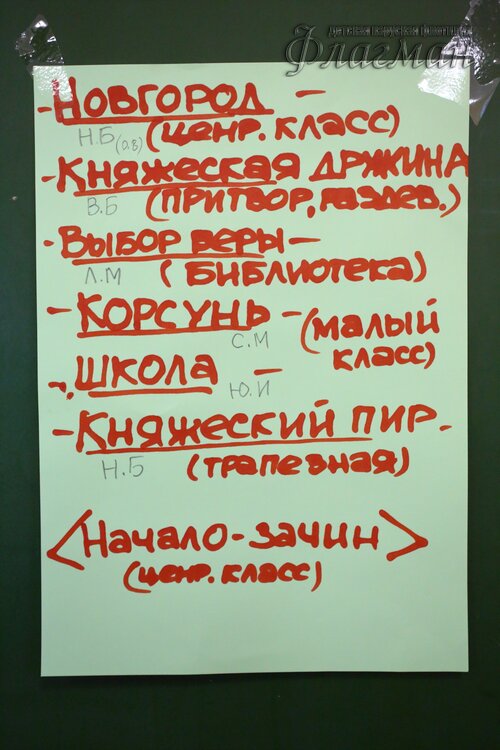 Флагман
- Новгород -
Н.Б (о.в) (ценр. класс)
- Княжеская држина
В.Б (притвор, раздев.)
- Выбор веры -
Л.М (библиотека)
- Корсунь - (малый
С.М класс)
- Школа -
Ю.И
- Княжеский пир.
Н.Б (трапезная)
<Начало-зачин>
(ценр. класс)